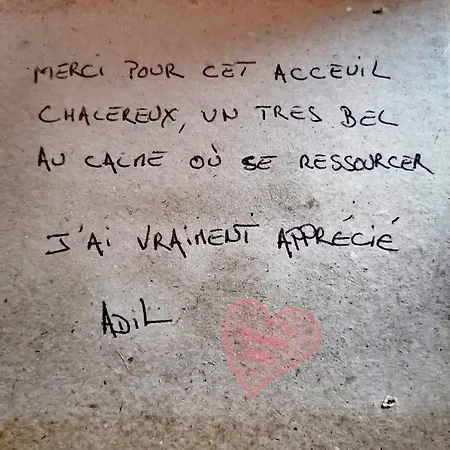 MERCI POUR CET ACCEUIL
CHALEREUX, UN TRES BEL
AU CALME OÙ SE RESSOURCER
J'AI VRAIMENT APPRÉCIÉ
ADIL